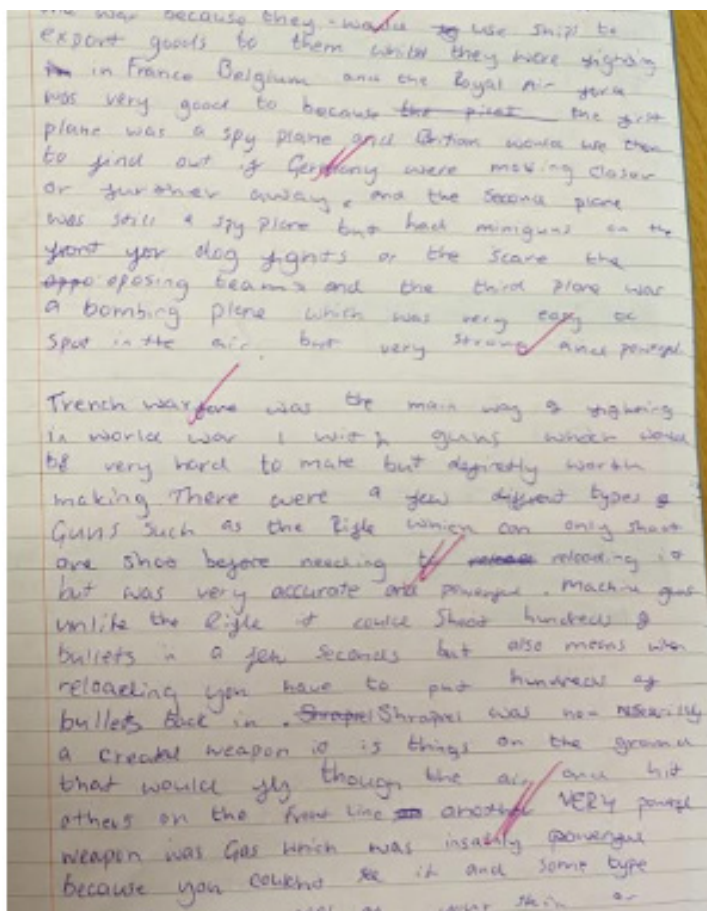 the war because they would use ships to
export goods to them whilst they were fighting
in France Belgium and the Royal Air force
was very good to because the pilot the first
plane was a spy plane and Britian would use them
to find out if Germany were moving closer
or further away, and the second plane
was still a spy plane but had miniguns on the
front for dog fights or the scare the
oppo oposing teams and the third plane was
a bombing plane which was very easy to
spot in the air. but very strong and powerful
Trench warfare was the main way of fighting
in world war 1 with guns which would
be very hard to make but definetly worth
making There were a few different types of
Guns such as the Rifle which can only shoot
one shot before needing to reloading it
but was very accurate and powerful. Machine guns
unlike the Rifle it could shoot hundreds of
bullets in a few seconds but also means when
reloading you have to put hundreds of
bullets back in. Shrapnel was not
a created weapon it is things on the ground
that would fly though the air and hit
others on the front line another VERY powerful
weapon was Gas which was insanly powerful
because you couldnt see it and some type
your skin or